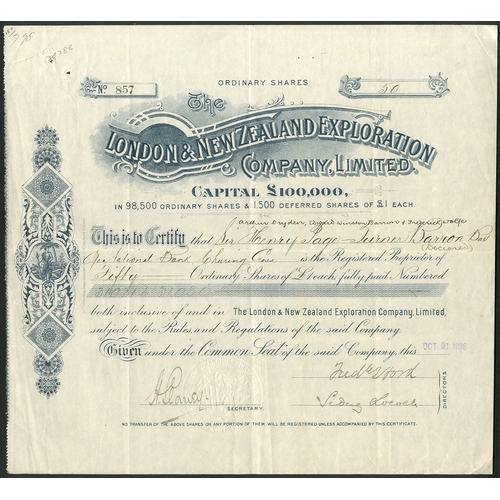 ORDINARY SHARES
No 857
50
The
LONDON & NEW ZEALAND EXPLORATION
COMPANY, LIMITED.
CAPITAL £100,000,
IN 98,500 ORDINARY SHARES & 1,500 DEFERRED SHARES OF £1 EACH.
This is to Certify that Sir Henry Page-Turner Barron
(Deceased)
National Bank Charing Cross is the Registered Proprietor of
Fifty Ordinary Shares of £1 each, fully paid Numbered
both inclusive of and in The London & New Zealand Exploration Company, Limited,
subject to the Rules and Regulations of the said Company.
Given under the Common Seal of the said Company, this OCT 21 1896
SECRETARY.
DIRECTORS
NO TRANSFER OF THE ABOVE SHARES OR ANY PORTION OF THEM WILL BE REGISTERED UNLESS ACCOMPANIED BY THIS CERTIFICATE.